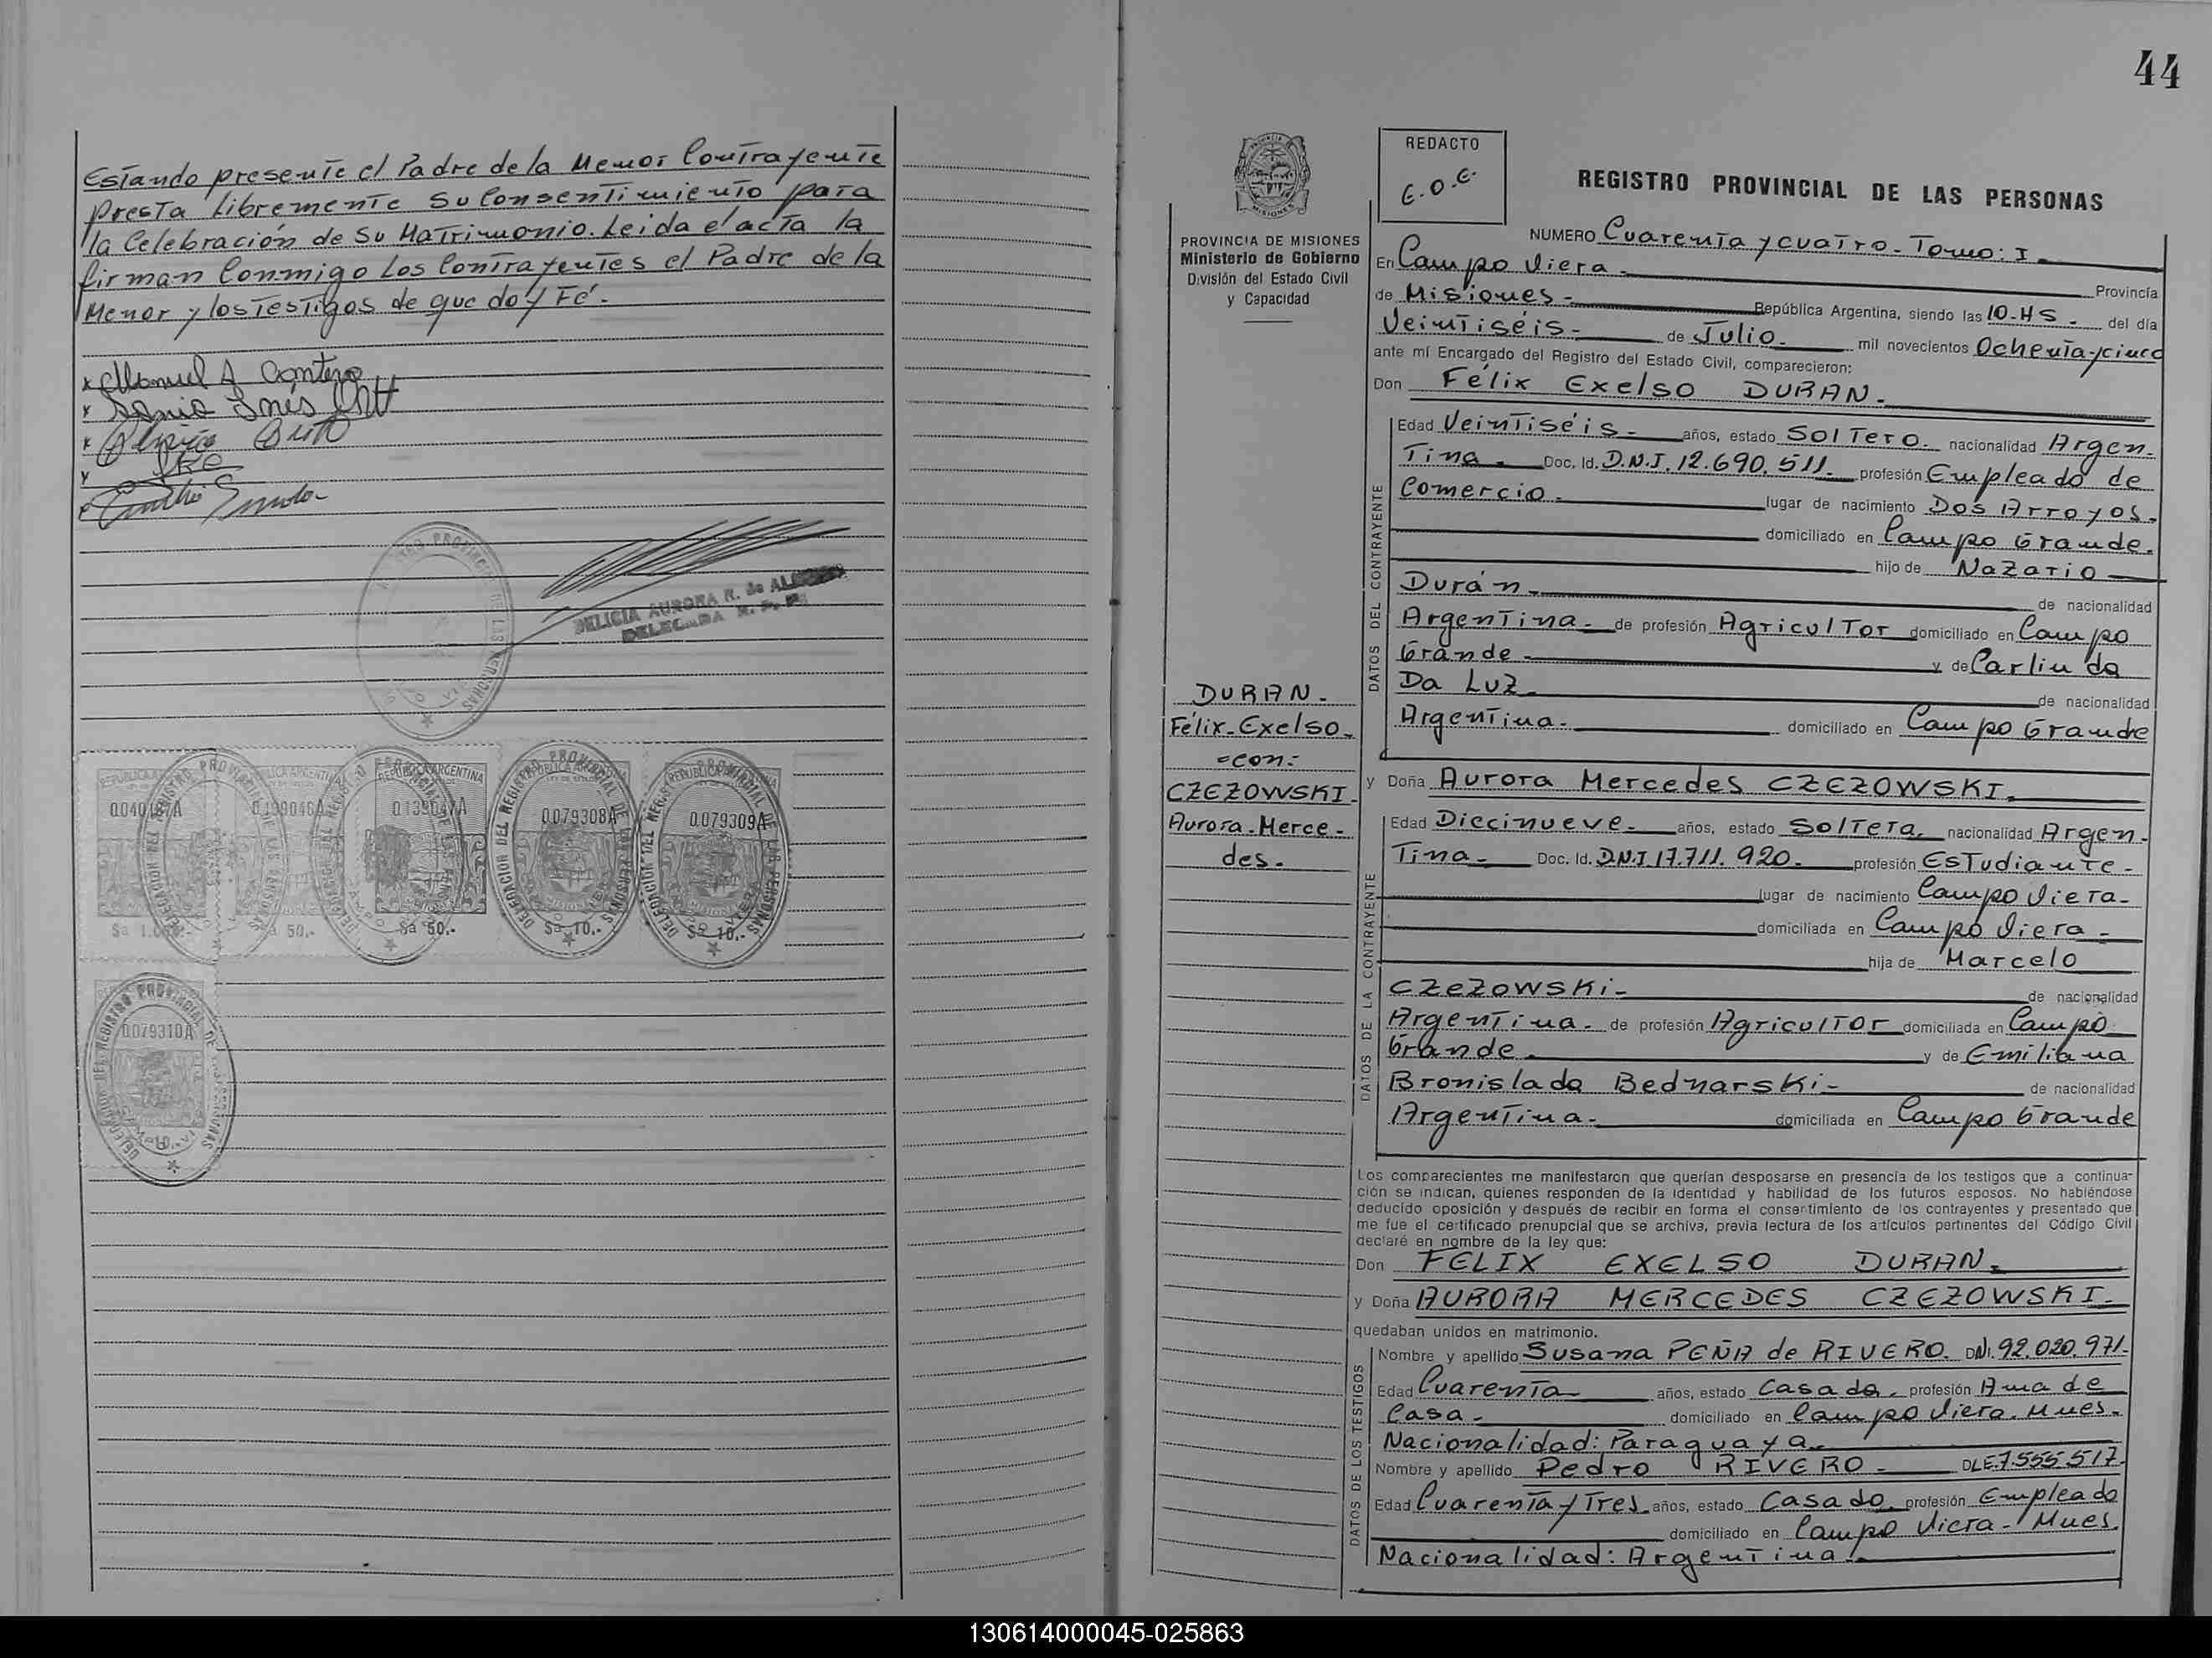 Estando presente el Padre de la Menor Contrayente
presta libremente su Consentimiento para
la Celebración de su Matrimonio. Leida el acta la
firman Conmigo los Contrayentes el Padre de la
Menor y los Testigos de que doy Fé.-
DELICIA AURORA R. de
DELEGADA R. P. P.
REPUBLICA ARGENTINA
0.040187A
0.139046A
0.139047A
0.079308A
0.079309A
$a 50.-
$a 50.-
$a 10.-
$a 10.-
0.079310A
44
PROVINCIA DE MISIONES
Ministerio de Gobierno
División del Estado Civil
y Capacidad
REDACTO
E.O.E.
REGISTRO PROVINCIAL DE LAS PERSONAS
NUMERO Cuarenta y cuatro - Tomo: I -
En Campo Viera - Provincia
de Misiones - República Argentina, siendo las 10-HS - del día
Veintiséis - de Julio - mil novecientos Ochenta y cinco
ante mí Encargado del Registro del Estado Civil, comparecieron:
Don Félix Exelso DURAN -
DATOS DEL CONTRAYENTE
Edad Veintiséis - años, estado Soltero. nacionalidad Argen-
Tina - Doc. Id. D.N.I. 12.690.511 - profesión Empleado de
Comercio - lugar de nacimiento Dos Arroyos -
domiciliado en Campo Grande.
hijo de Nazario
Durán - de nacionalidad
Argentina - de profesión Agricultor domiciliado en Campo
Grande - y de Carlinda
Da Luz - de nacionalidad
Argentina - domiciliado en Campo Grande
DURAN -
Félix - Exelso -
=con=
CZEZOWSKI -
Aurora - Merce -
des -
y Doña Aurora Mercedes CZEZOWSKI -
DATOS DE LA CONTRAYENTE
Edad Diecinueve - años, estado Soltera. nacionalidad Argen-
Tina - Doc. Id. D.N.I 17.711.920 - profesión Estudiante -
lugar de nacimiento Campo Viera -
domiciliada en Campo Viera -
hija de Marcelo
Czezowski - de nacionalidad
Argentina - de profesión Agricultor domiciliada en Campo
Grande - y de Emiliana
Bronislada Bednarski - de nacionalidad
Argentina - domiciliada en Campo Grande
Los comparecientes me manifestaron que querían desposarse en presencia de los testigos que a continua-
ción se indican, quienes responden de la identidad y habilidad de los futuros esposos. No habiéndose
deducido oposición y después de recibir en forma el consentimiento de los contrayentes y presentado que
me fue el certificado prenupcial que se archiva, previa lectura de los artículos pertinentes del Código Civil
declaré en nombre de la ley que:
Don FELIX EXELSO DURAN -
y Doña AURORA MERCEDES CZEZOWSKI -
quedaban unidos en matrimonio.
DATOS DE LOS TESTIGOS
Nombre y apellido Susana PEÑA de RIVERO. DNI. 92.020.971 -
Edad Cuarenta - años, estado Casada - profesión Ama de
Casa - domiciliado en Campo Viera. Mnes -
Nacionalidad: Paraguaya -
Nombre y apellido Pedro RIVERO - DLE. 7.555.517 -
Edad Cuarenta y Tres - años, estado Casado profesión Empleado
domiciliado en Campo Viera - Mnes.
Nacionalidad: Argentina -
130614000045-025863